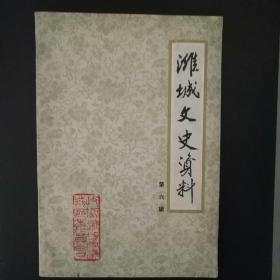 潍城文史资料
第六辑